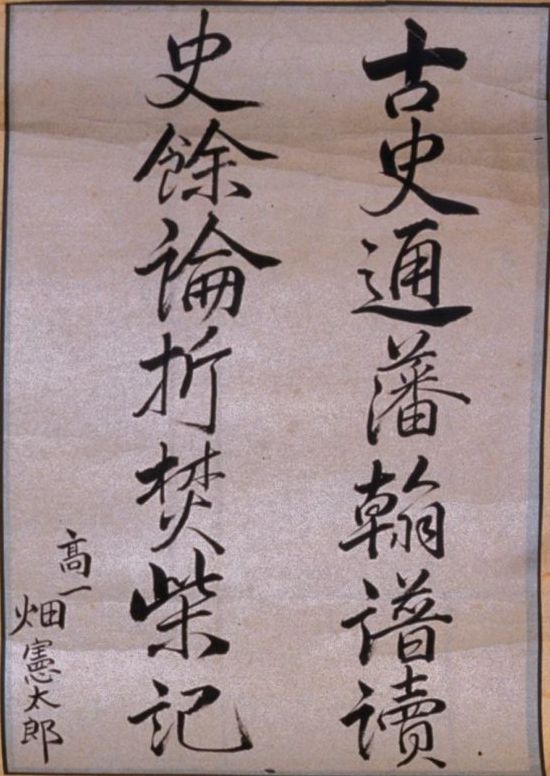 古史通藩翰譜讀
史餘論折焚柴記
高一
畑憲太郎